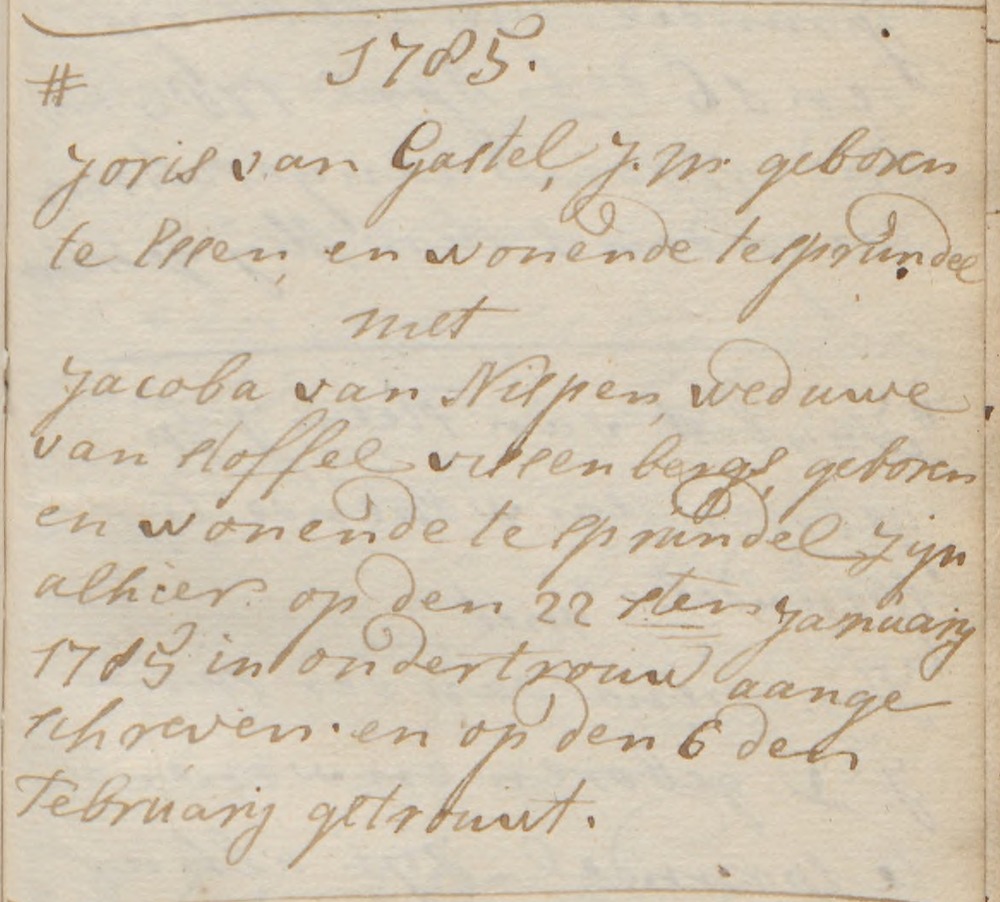 1785.
#
Joris van Gastel, J.M. geboren
te Essen, en wonende te sprundel
met
Jacoba van Nispen, weduwe
van stoffel vissenbergs, geboren
en wonende te sprundel zijn
alhier op den 22 sten January
1785 in ondertrouw aange
schreven. en op den 6 den
February getrouwt.